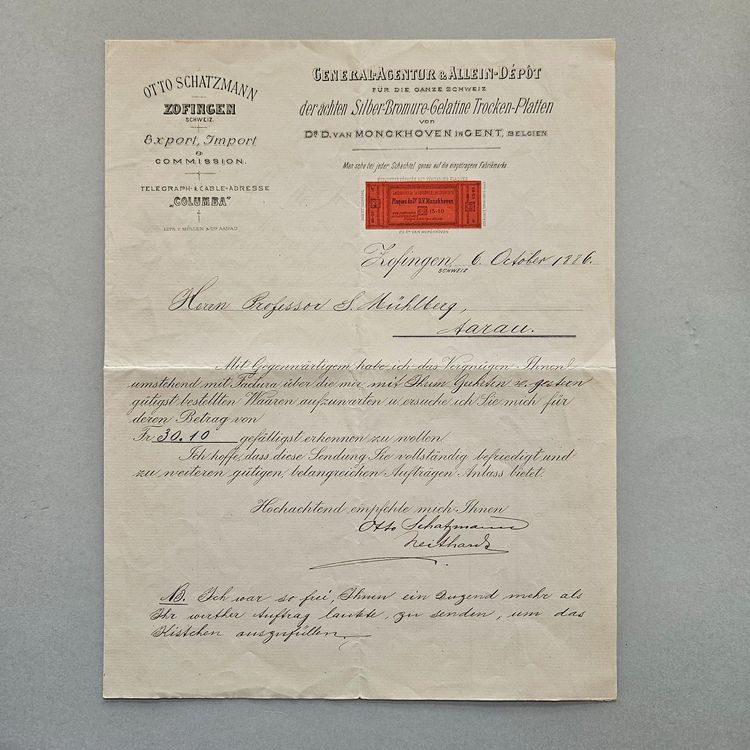 OTTO SCHATZMANN
ZOFINGEN
SCHWEIZ.
Export, Import
&
COMMISSION.
TELEGRAPH- & CABLE-ADRESSE
"COLUMBA"
LITH. F. MÜLLER & Cie AARAU
GENERAL-AGENTUR & ALLEIN-DÉPÔT
FÜR DIE GANZE SCHWEIZ
der ächten Silber-Bromure-Gelatine Trocken-Platten
VON
Dr. D. VAN MONCKHOVEN IN GENT, BELGIEN.
Man sehe bei jeder Schachtel genau auf die eingetragene Fabrikmarke
Plaques du Dr. D.V. Monckhoven.
Zofingen, 6. October 1886.
SCHWEIZ
Herrn Professor S. Mühlberg,
Aarau.
Mit Gegenwärtigem habe ich das Vergnügen Ihnen
umstehend mit Factura über die mir mit Ihrem Geehrten v. gestern
gütigst bestellten Waaren aufzuwarten u. ersuche ich Sie mich für
deren Betrag von
Fr. 30.10 gefälligst erkennen zu wollen
Ich hoffe, dass diese Sendung Sie vollständig befriedigt und
zu weiteren gütigen, belangreichen Aufträgen Anlass bietet.
Hochachtend empfehle mich Ihnen
Otto Schatzmann
NB. Ich war so frei, Ihnen ein Duzend mehr als
Ihr werther Auftrag lautte, zu senden, um das
Kistchen auszufüllen.